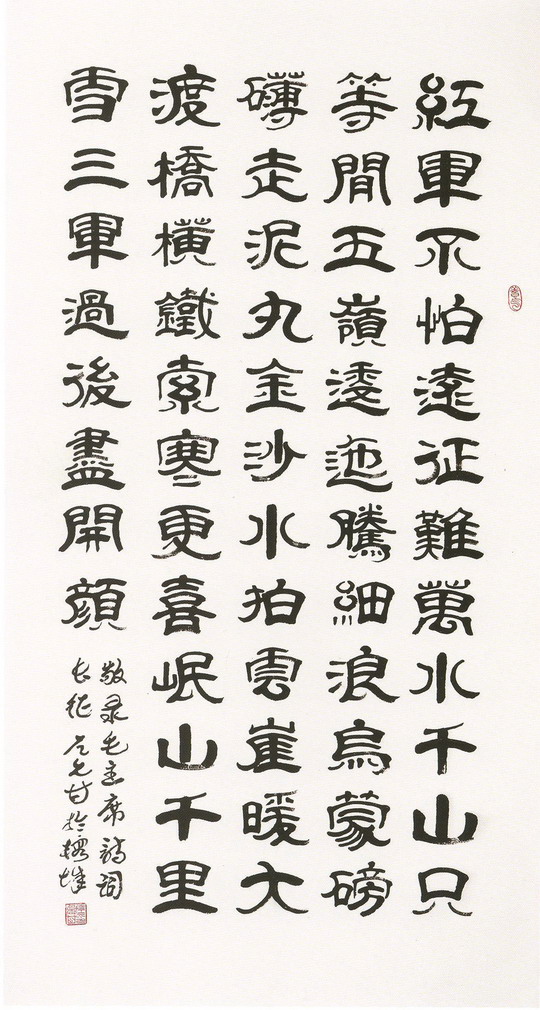 紅軍不怕遠征難萬水千山只
等閒五嶺逶迤騰細浪烏蒙磅
礴走泥丸金沙水拍雲崖暖大
渡橋橫鐵索寒更喜岷山千里
雪三軍過後盡開顏
敬录毛主席詩詞
长征 於榕城